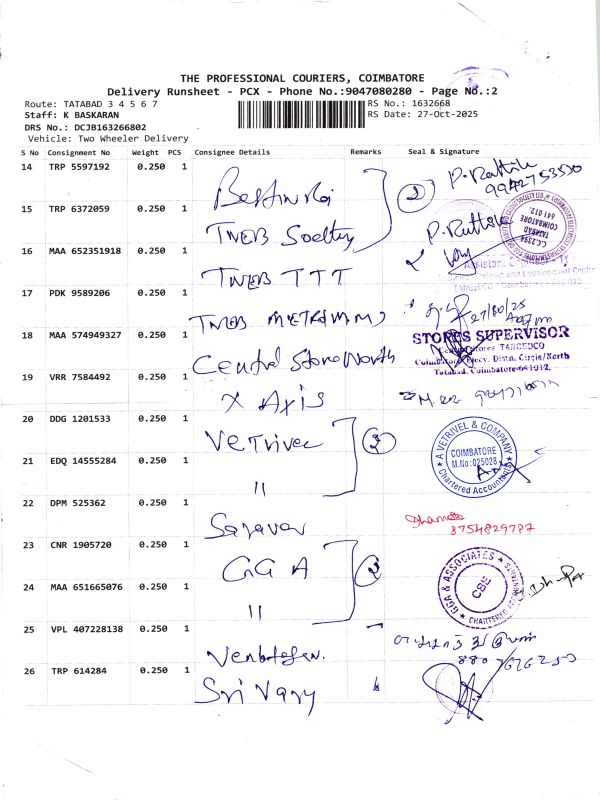 THE PROFESSIONAL COURIERS, COIMBATORE
Delivery Runsheet - PCX - Phone No.:9047080280 - Page No.:2
Route: TATABAD 3 4 5 6 7
RS No.: 1632668
Staff: K BASKARAN
RS Date: 27-Oct-2025
DRS No.: DCJB163266802
Vehicle: Two Wheeler Delivery
S No Consignment No Weight PCS Consignee Details Remarks Seal & Signature
14 TRP 5597192 0.250 1
2 P. Ruthik
15 TRP 6372059 0.250 1
TNEB Soceity
16 MAA 652351918 0.250 1
TNEB TTT
17 PDK 9589206 0.250 1
27/10/25
TNEB
18 MAA 574949327 0.250 1
STORES SUPERVISOR
Central Store North
Central Stores TANGEDCO
Coimbatore Elecy. Distn. Circle/North
Tatabad, Coimbatore-641012.
19 VRR 7584492 0.250 1
X Axis
20 DDG 1201533 0.250 1
Vetrivel 2
A VETRIVEL & COMPANY
COIMBATORE
M.No:025028
Chartered Accountants
21 EDQ 14555284 0.250 1
"
22 DPM 525362 0.250 1
Saravan
8754829787
23 CNR 1905720 0.250 1
GGA 2
GGA & ASSOCIATES
CBE
CHARTERED
24 MAA 651665076 0.250 1
"
25 VPL 407228138 0.250 1
26 TRP 614284 0.250 1
Sri Vary